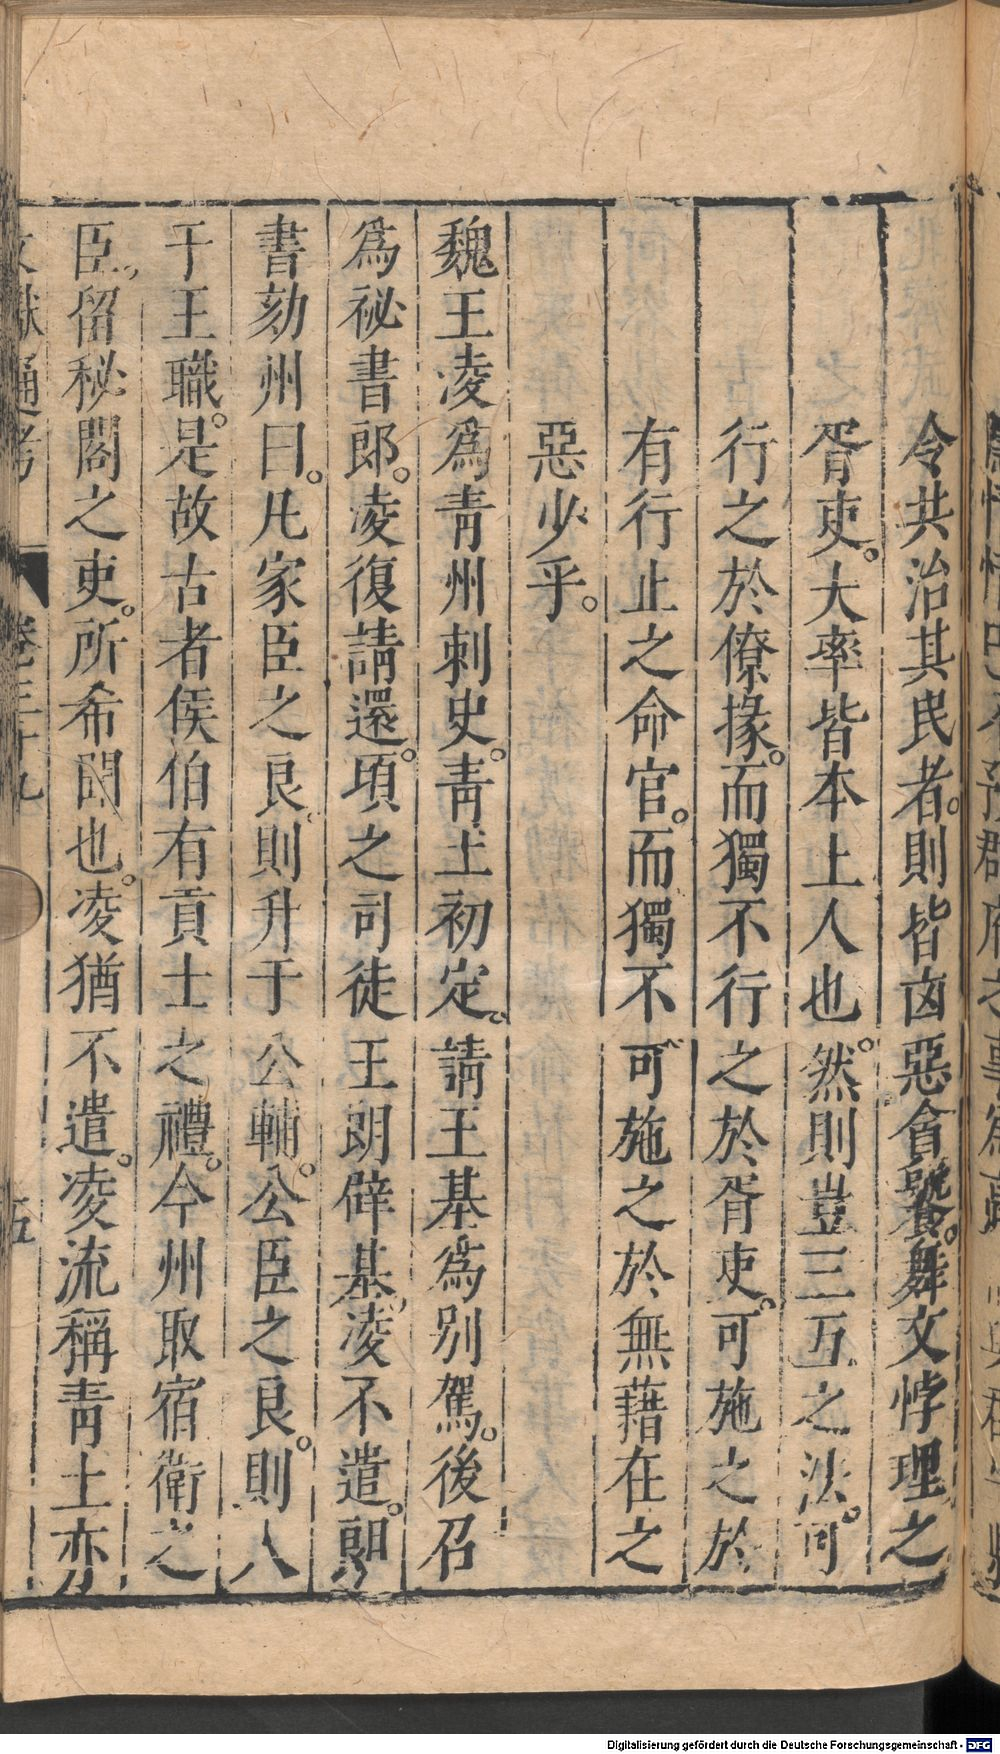 令共治其民者。則皆凶惡貪饕。舞文悖理之
胥吏。大率皆本土人也。然則豈三互之法。可
行之於僚掾。而獨不行之於胥吏。可施之於
有行止之命官。而獨不可施之於無藉在之
惡少乎。
魏王凌爲青州刺史。青土初定。請王基爲別駕。後召
爲祕書郎。凌復請還。頃之司徒王朗辟基。凌不遣。朗
書劾州曰。凡家臣之良。則升于公輔。公臣之良。則入
于王職。是故古者侯伯有貢士之禮。今州取宿衛之
臣。留秘閣之吏。所希聞也。凌猶不遣。凌流稱青土亦
文獻通考 卷三十九 五
Digitalisierung gefördert durch die Deutsche Forschungsgemeinschaft - DFG